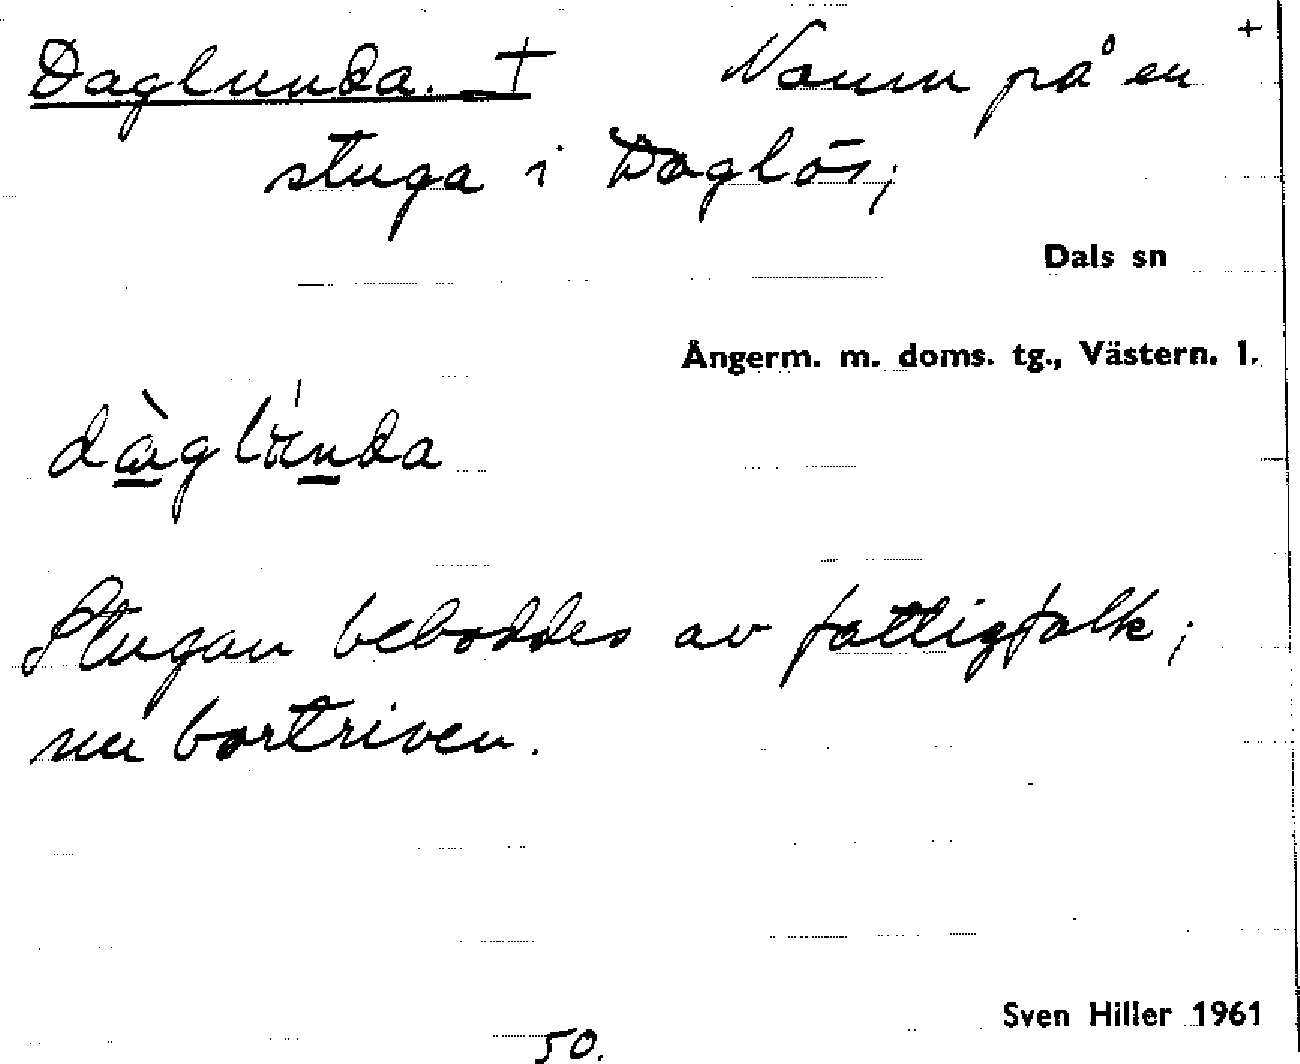 Daglunda. † Namn på en +
stuga i Daglös;
Dals sn
Ångerm. m. doms. tg., Västern. l.
Stugan beboddes av fattigfolk;
nu bortriven.
Sven Hiller 1961
50.